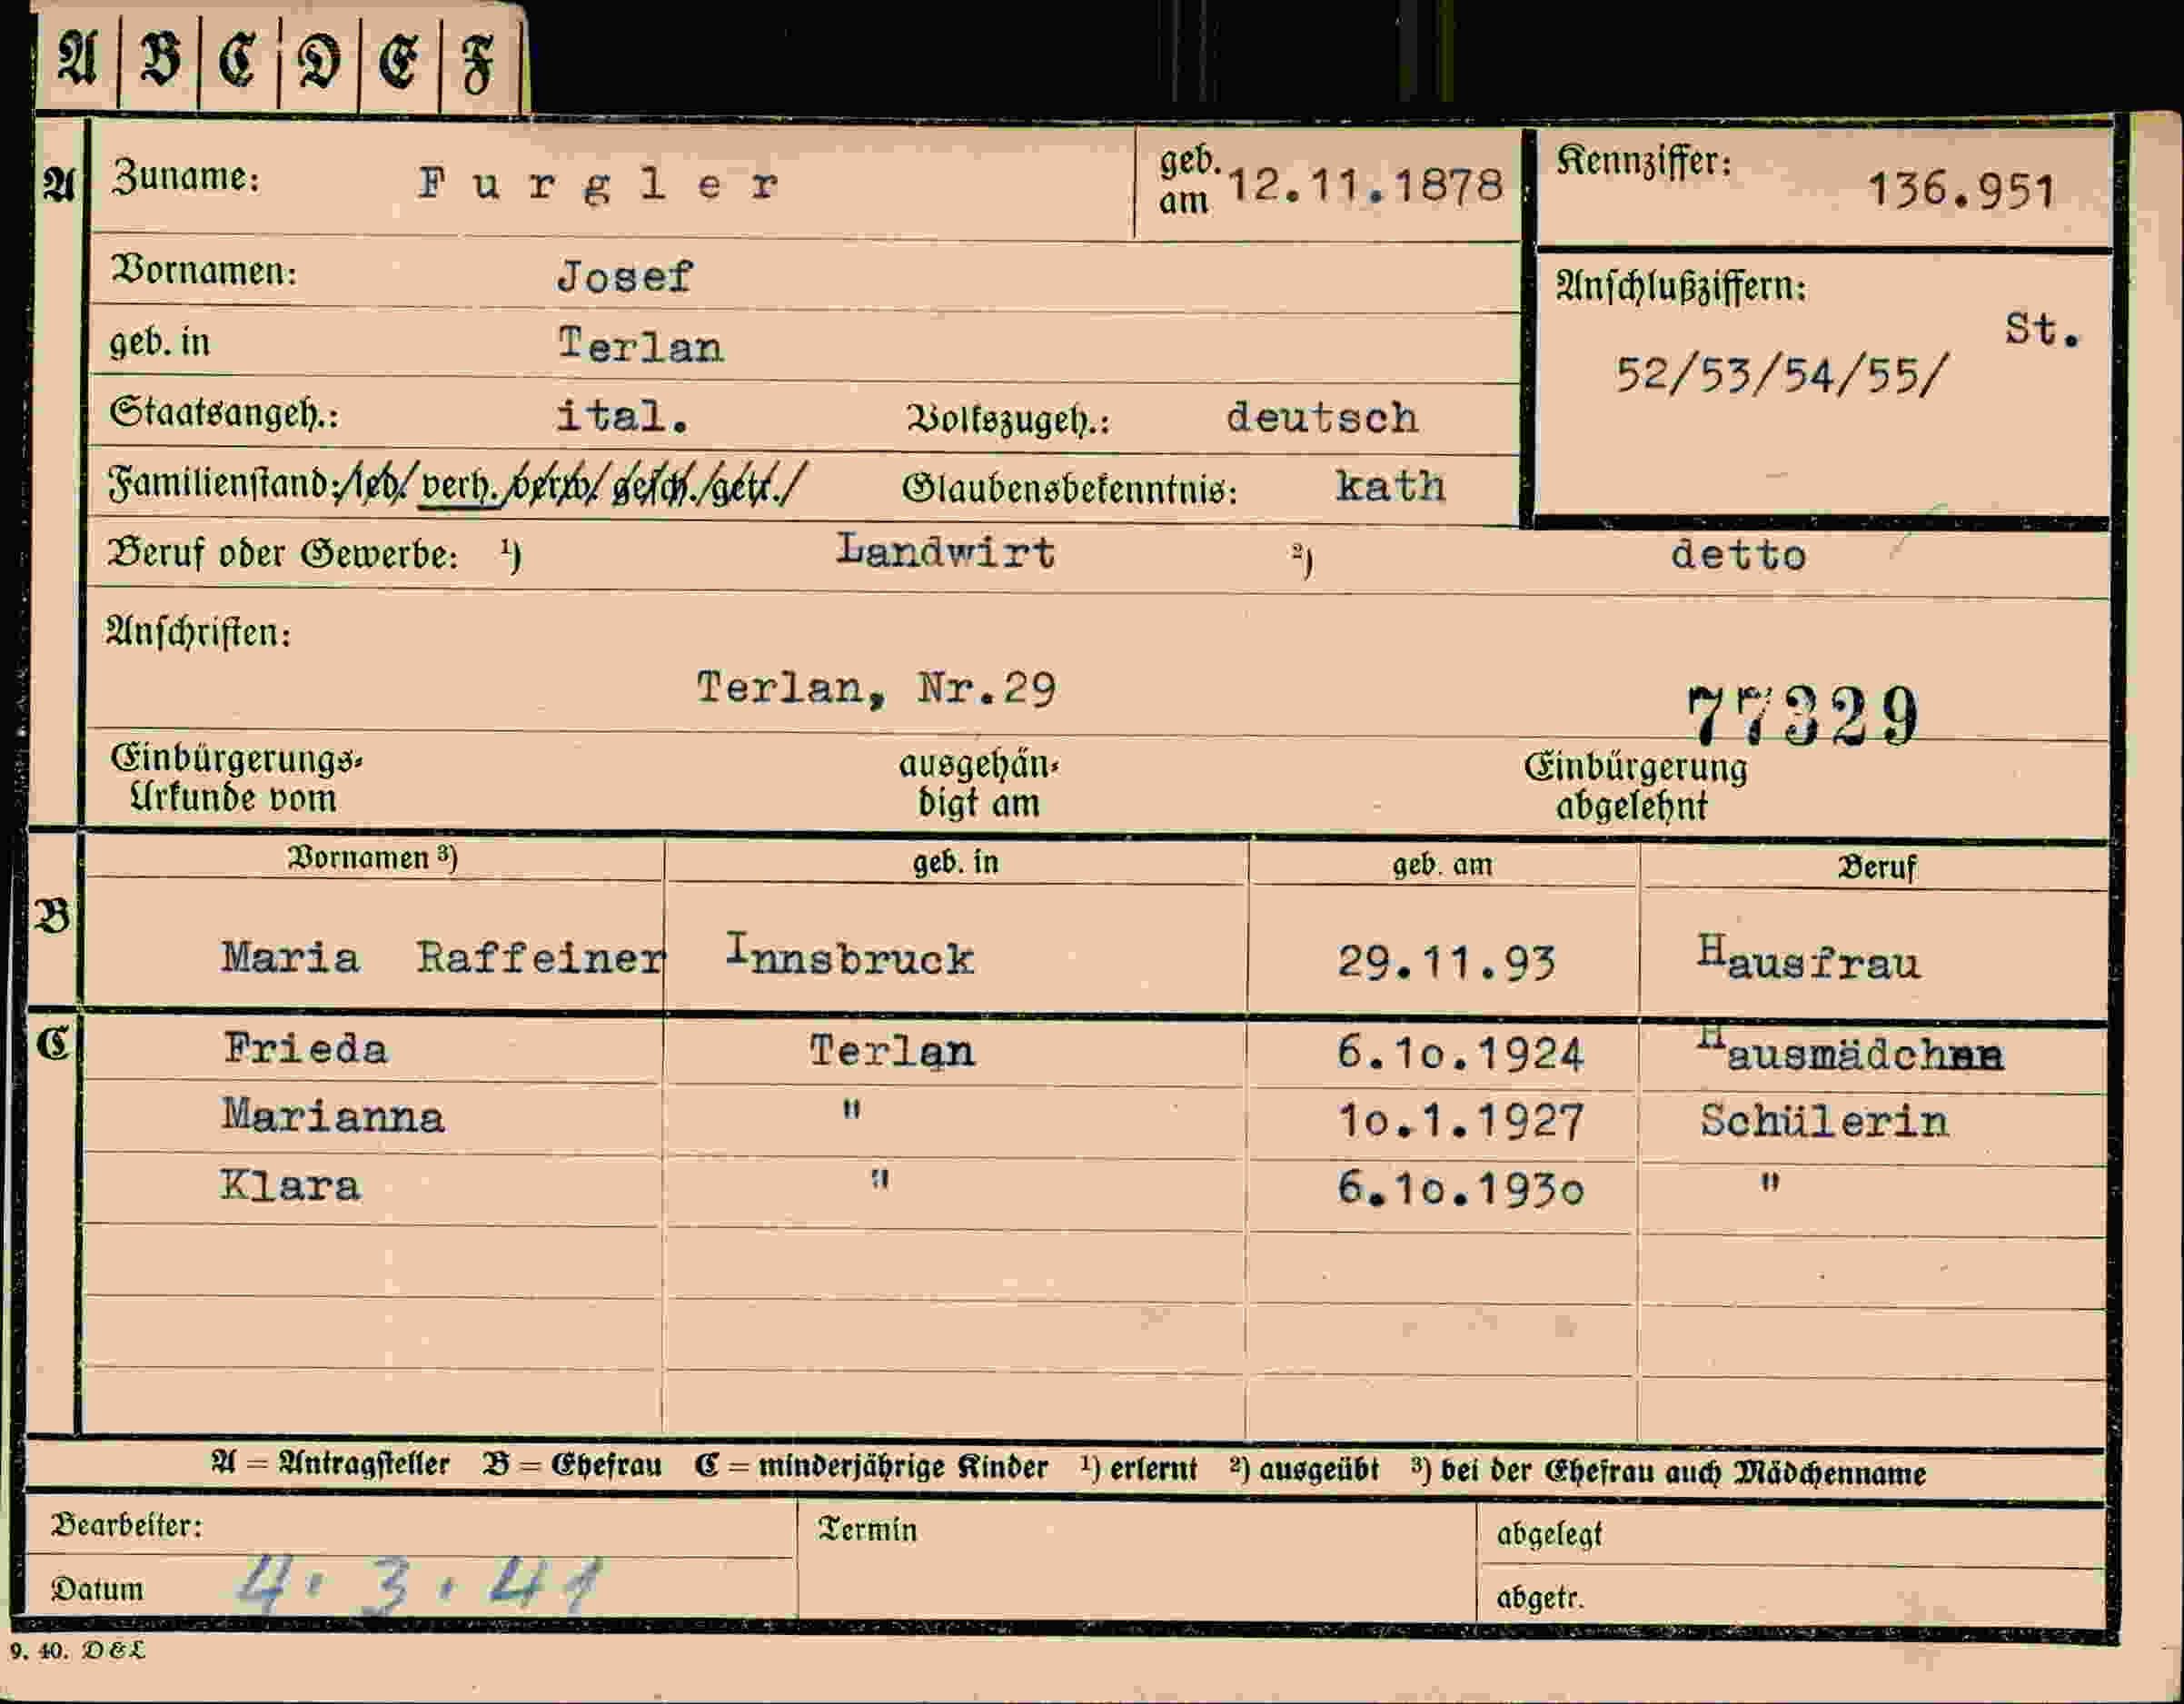 A B C D E F
A Zuname: Furgler geb. am 12.11.1878 Kennziffer: 136.951
Vornamen: Josef Anschlußziffern:
St.
geb. in Terlan 52/53/54/55/
Staatsangeh.: ital. Volkszugeh.: deutsch
Familienstand: led./ verh./verw./ gesch./getr./ Glaubensbekenntnis: kath
Beruf oder Gewerbe: ¹) Landwirt ²) detto
Anschriften:
Terlan, Nr.29 77329
Einbürgerungs- ausgehän- Einbürgerung
Urkunde vom digt am abgelehnt
Vornamen ³) geb. in geb. am Beruf
B Maria Raffeiner Innsbruck 29.11.93 Hausfrau
C Frieda Terlan 6.10.1924 Hausmädchen
Marianna " 10.1.1927 Schülerin
Klara " 6.10.1930 "
A = Antragsteller B = Ehefrau C = minderjährige Kinder ¹) erlernt ²) ausgeübt ³) bei der Ehefrau auch Mädchenname
Bearbeiter: Termin abgelegt
Datum 4. 3. 41 abgetr.
9. 40. D&L